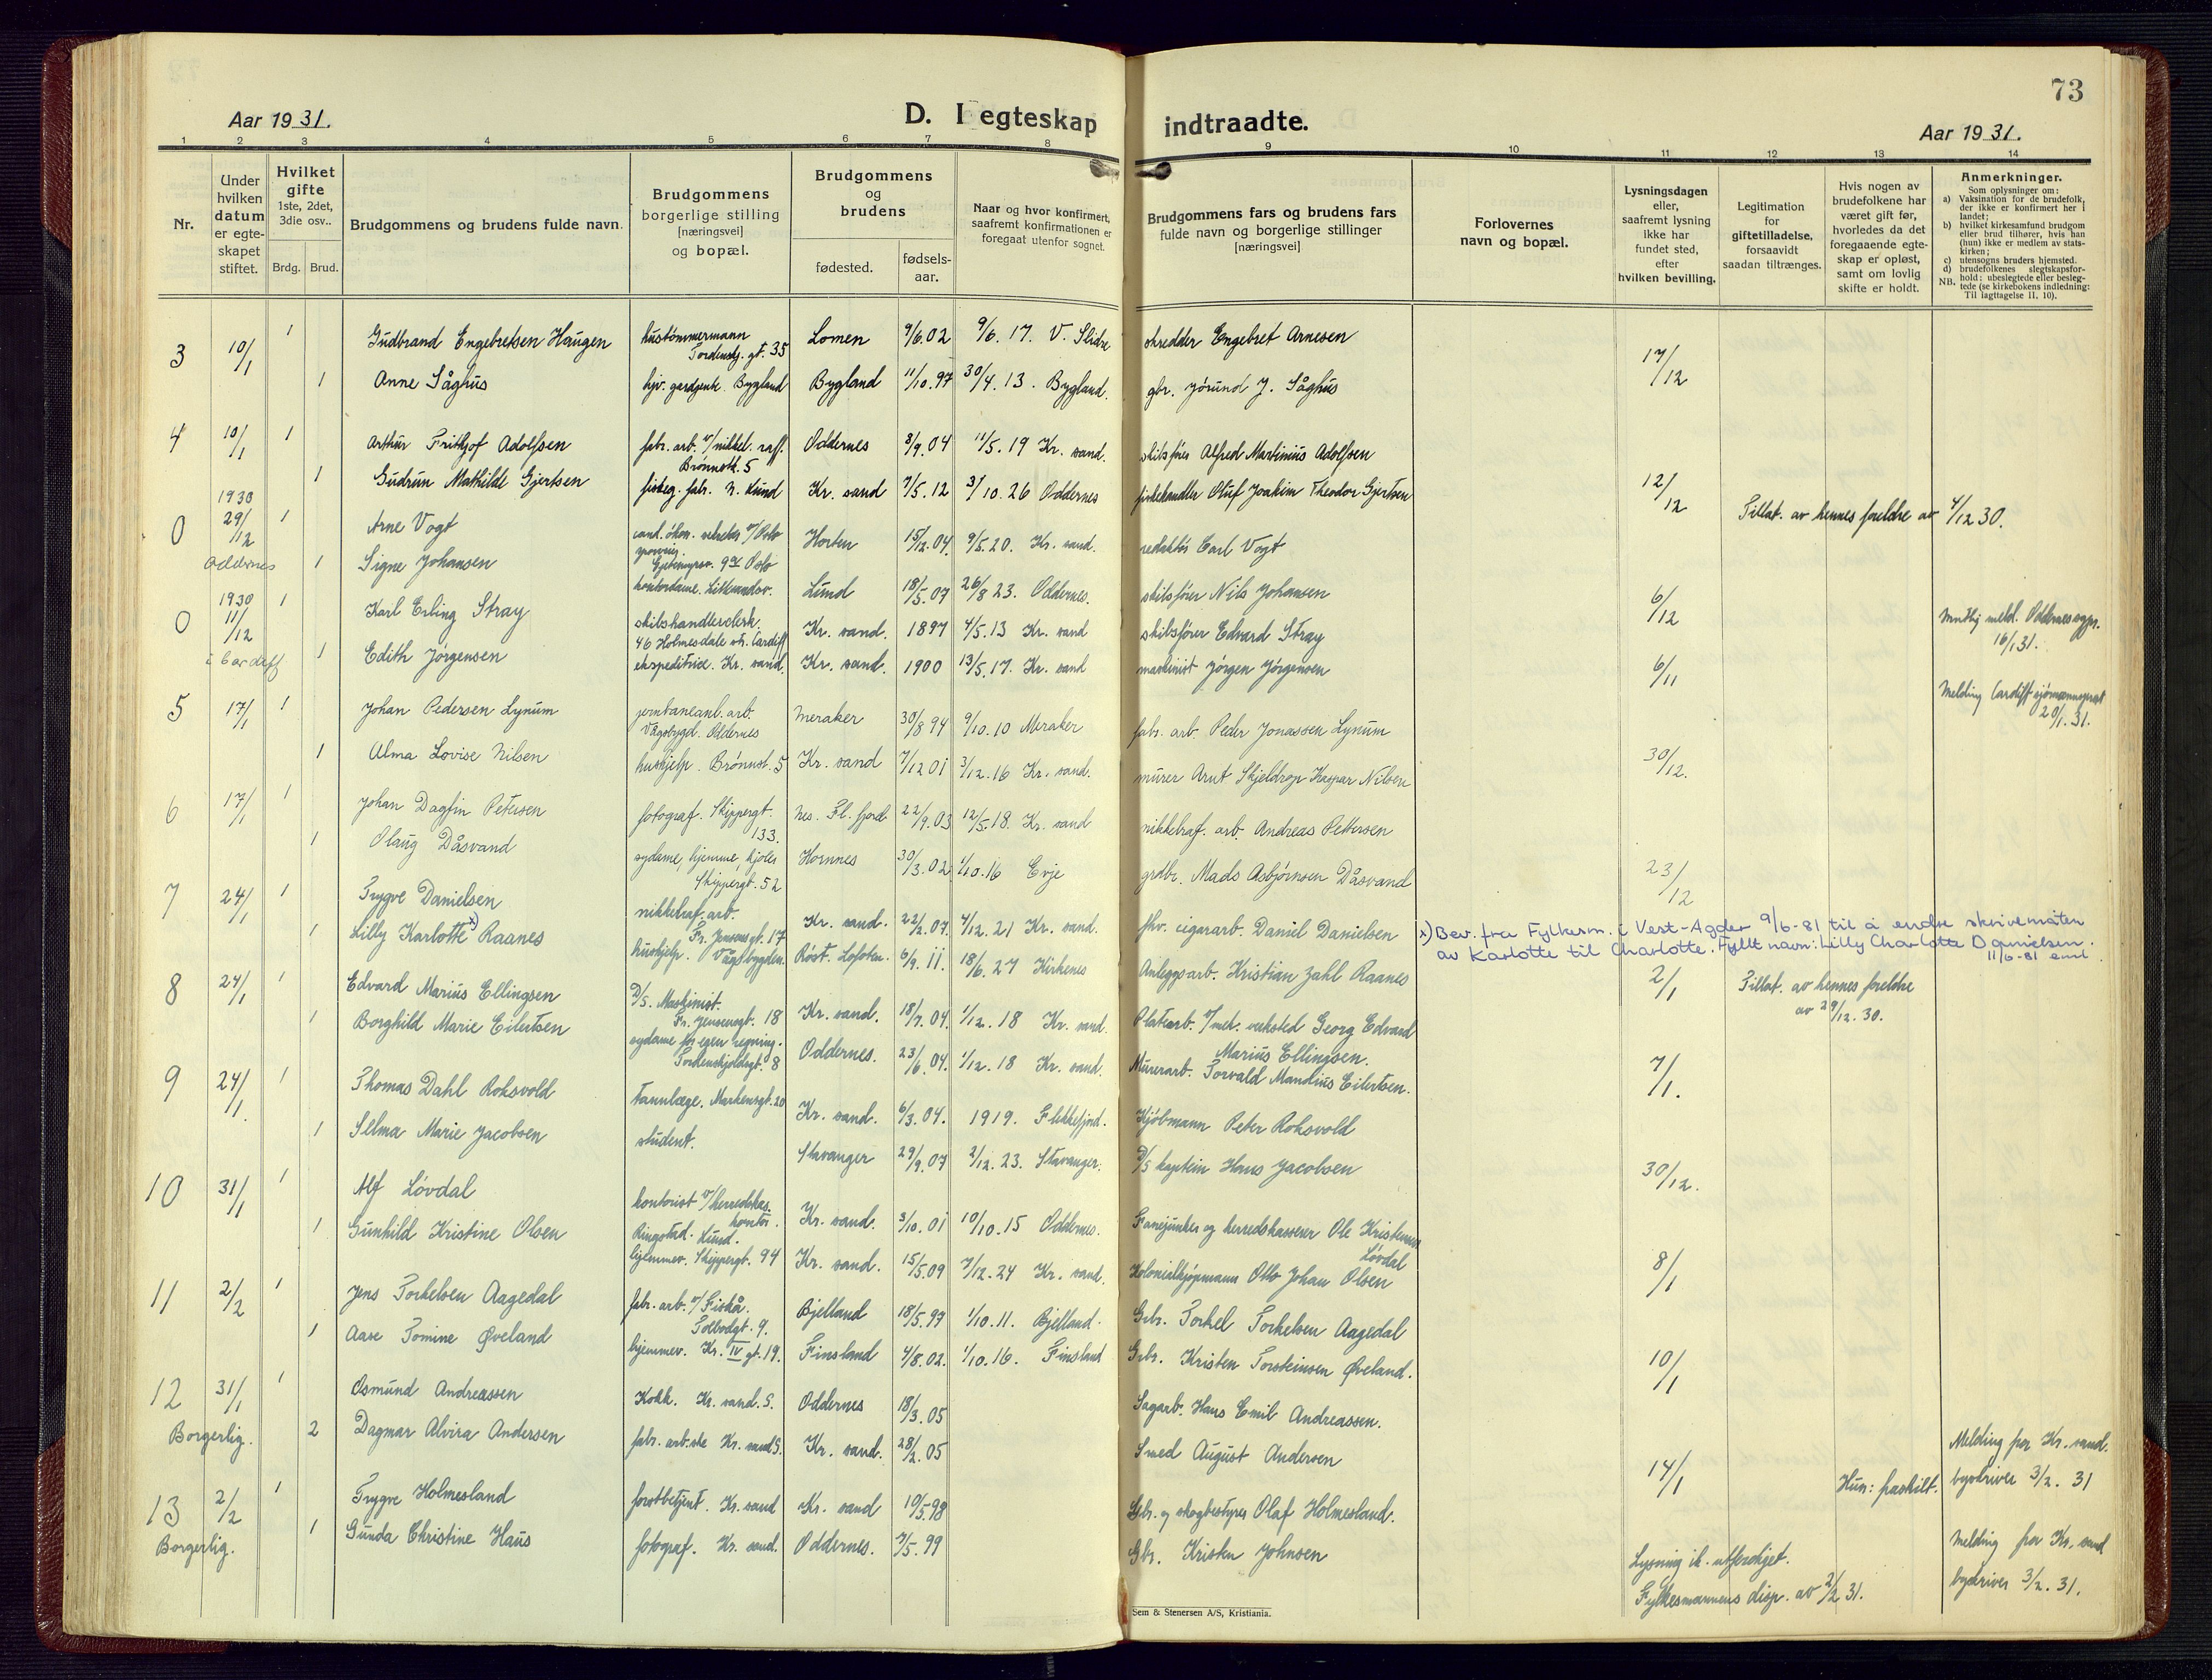 73
Aar 1931.
D. I egteskap indtraadte.
Aar 1931.
1 2 3 4 5 6 7 8 9 10 11 12 13 14
Nr.
Under hvilken datum er egteskapet stiftet.
Hvilket gifte 1ste, 2det, 3die osv..
Brdg. Brud.
Brudgommens og brudens fulde navn.
Brudgommens borgerlige stilling [næringsvei] og bopæl.
Brudgommens og brudens
fødested. fødselsaar.
Naar og hvor konfirmert, saafremt konfirmationen er foregaat utenfor sognet.
Brudgommens fars og brudens fars fulde navn og borgerlige stillinger [næringsvei]
Forlovernes navn og bopæl.
Lysningsdagen eller, saafremt lysning ikke har fundet sted, efter hvilken bevilling.
Legitimation for giftetilladelse, forsaavidt saadan tiltrænges.
Hvis nogen av brudefolkene har været gift før, hvorledes da det foregaaende egteskap er opløst, samt om lovlig skifte er holdt.
Anmerkninger.
Som oplysninger om:
a) Vaksination for de brudefolk, der ikke er konfirmert her i landet;
b) hvilket kirkesamfund brudgom eller brud tilhører, hvis han (hun) ikke er medlem av statskirken;
c) utensogns bruders hjemsted.
d) brudefolkenes slegtskapsforhold; ubeslegtede eller beslegtede (se kirkebokens indledning: Til iagttagelse II, 10).
NB.
3 10/1 1 Gudbrand Engebretsen Haugen hustømmermann Tordenskj. gt. 35 Lomen 9/6.02 9/6.17. V. Slidre skredder Engebret Arnesen 17/12
1 Anne Såghus hjv. gardjente. Bygland Bygland 11/10.97 30/4.13. Bygland. gbr. Jørund J. Såghus
4 10/1 1 Arthur Frithjof Adolfsen fabr. arb. v/nikkel. raff. Brønnstr. 5 Oddernes 8/9.04 11/5.19 Kr. sand. skibsfører Alfred Martinius Adolfsen 12/12
1 Gudrun Mathilde Gjertsen fabr. n. Lund Kr. sand 7/5.12 3/10.26 Oddernes fiskehandler Oluf Joakim Theodor Gjertsen Tillat. av hennes foreldre av 4/12 30.
0 1930 29/12 Oddernes 1 Arne Vogt cand. økon. v/Oslo Oslo Horten 15/12.04. 9/5.20. Kr. sand. redaktør Carl Vogt 6/12
1 Signe Johansen kontordame. Lund 18/5.07 26/8 23. Oddernes. skibsfører Nils Johansen Oddernes sogpr. 16/1 31.
0 1930 11/12 i Cardiff 1 Karl Erling Stray skibshandlerclerk. 46 Holmesdale str. Cardiff Kr. sand. 1897 4/5.13 Kr. sand skibsfører Edvard Stray 6/11
1 Edith Jørgensen ekspeditrice. Kr. sand. Kr. sand. 1900 13/5.17. Kr. sand maskinist Jørgen Jørgensen Melding Cardiff sjømannsprest 20/1.31.
5 17/1 1 Johan Pedersen Lynum jernbaneanl. arb. Vågsbygd. Oddernes Meraker 30/8 94 9/10.10 Meraker fabr. arb. Peder Jonassen Lynum 30/12.
1 Alma Lovise Nilsen hushjelp. Brønnst. 5 Kr. sand 7/12 01 3/12.16 Kr. sand. murer Arnt Skjeldrop Kaspar Nilsen
6 17/1 1 Johan Dagfin Petersen fotograf. Skippergt. 133. Nes. Fl. fjord 22/9.03 12/5.18. Kr. sand nikkelraf. arb. Andreas Pettersen 23/12
1 Olaug Dåsvand sydame, hjemme, kjoler Skippergt. 52 Hornnes 30/3.02 1/10.16 Evje grdbr. Mads Asbjørnsen Dåsvand
7 24/1 1 Trygve Danielsen nikkelraf. arb. Fr. Jensensgt. 17 Kr. sand. 22/2.07. 4/12.21 Kr. sand. fhv. cigararb. Daniel Danielsen 2/1
1 Lilly Karlotte x) Raanes hushjelp. Vågsbygden. Røst. Lofoten. 6/9.11. 18/6.27 Kirkenes Anleggsarb. Kristian Zahl Raanes Tillat. av hennes foreldre av 29/12. 30.
x) Bev. fra Fylkesm. i Vest-Agder 9/6-81 til å endre skrivemåten
av Karlotte til Charlotte. Fullt navn: Lilly Charlotte Danielsen.
11/6-81
8 24/1 1 Edvard Marius Ellingsen D/S. Maskinist. Fr. Jensensgt. 18 Kr. sand. 18/7.04. 1/12.18 Kr. sand. Platearb. v/mek. verksted Georg Edvard Marius Ellingsen. 7/1.
1 Borghild Marie Eilertsen sydame for egen regning. Tordenskjoldsgt. 8 Oddernes. 23/6.04. 1/12.18 Kr. sand. Murerarb. Torvald Mandius Eilertsen.
9 24/1. 1 Thomas Dahl Roksvold tannlæge. Markensgt. 20 Kr. sand. 6/3.04. 1919. Flekkefjord. Kjøbmann Peter Roksvold 30/12.
1 Selma Marie Jacobsen student. Stavanger 29/9.07 2/12.23. Stavanger. D/S kaptein Hans Jacobsen
10 31/1 1 Alf Løvdal kontorist v/herredskas. kontor. Ringstad. Lund. Kr. sand. 3/10.01 10/10.15 Oddernes. Fanejunker og herredskasserer Ole Kristensen Løvdal 8/1
1 Gunhild Kristine Olsen hjemmev. Skippergt. 94 Kr. sand. 15/5.09 7/12.24 Kr. sand. Kolonialkjøpmann Otto Johan Olsen
11 2/2 1 Jens Torkelsen Aagedal fabr. arb. v/Fiskå. Tolbodgt. 9. Bjelland 18/5.97 1/10.11. Bjelland. Grbr. Torkel Torkelsen Aagedal 10/1
1 Aase Tomine Øveland hjemmev. Kr. IV gt. 19. Finsland 4/8.02. 1/10.16. Finsland Grbr. Kristen Torsteinsen Øveland.
12 31/1 Borgerlig. 1 Osmund Andreassen Kokk. Kr. sand. S. Oddernes 18/3.05 Sagarb. Hans Emil Andreassen. 14/1
2 Dagmar Alvira Andersen fabr. arb.ske Kr. sand S. Kr. sand. 28/2.05 Smed August Andersen Hun: fraskilt. Melding fra Kr. sand. byskriver 3/2. 31
13 2/2 Borgerlig. 1 Trygve Holmesland forstbetjent. Kr. sand Kr. sand 10/5.98 Gbr. og skogbestyrer Olaf Holmesland.
1 Gunda Christine Haus fotograf. Kr. sand. Oddernes. 7/5.99 Gbr. Kristen Johnsen Lysning ik. utferdiget. Fylkesmannens disp. av 2/2 31. Melding fra Kr. sand byskriver 3/2. 31.
Sem & Stenersen A/S, Kristiania.